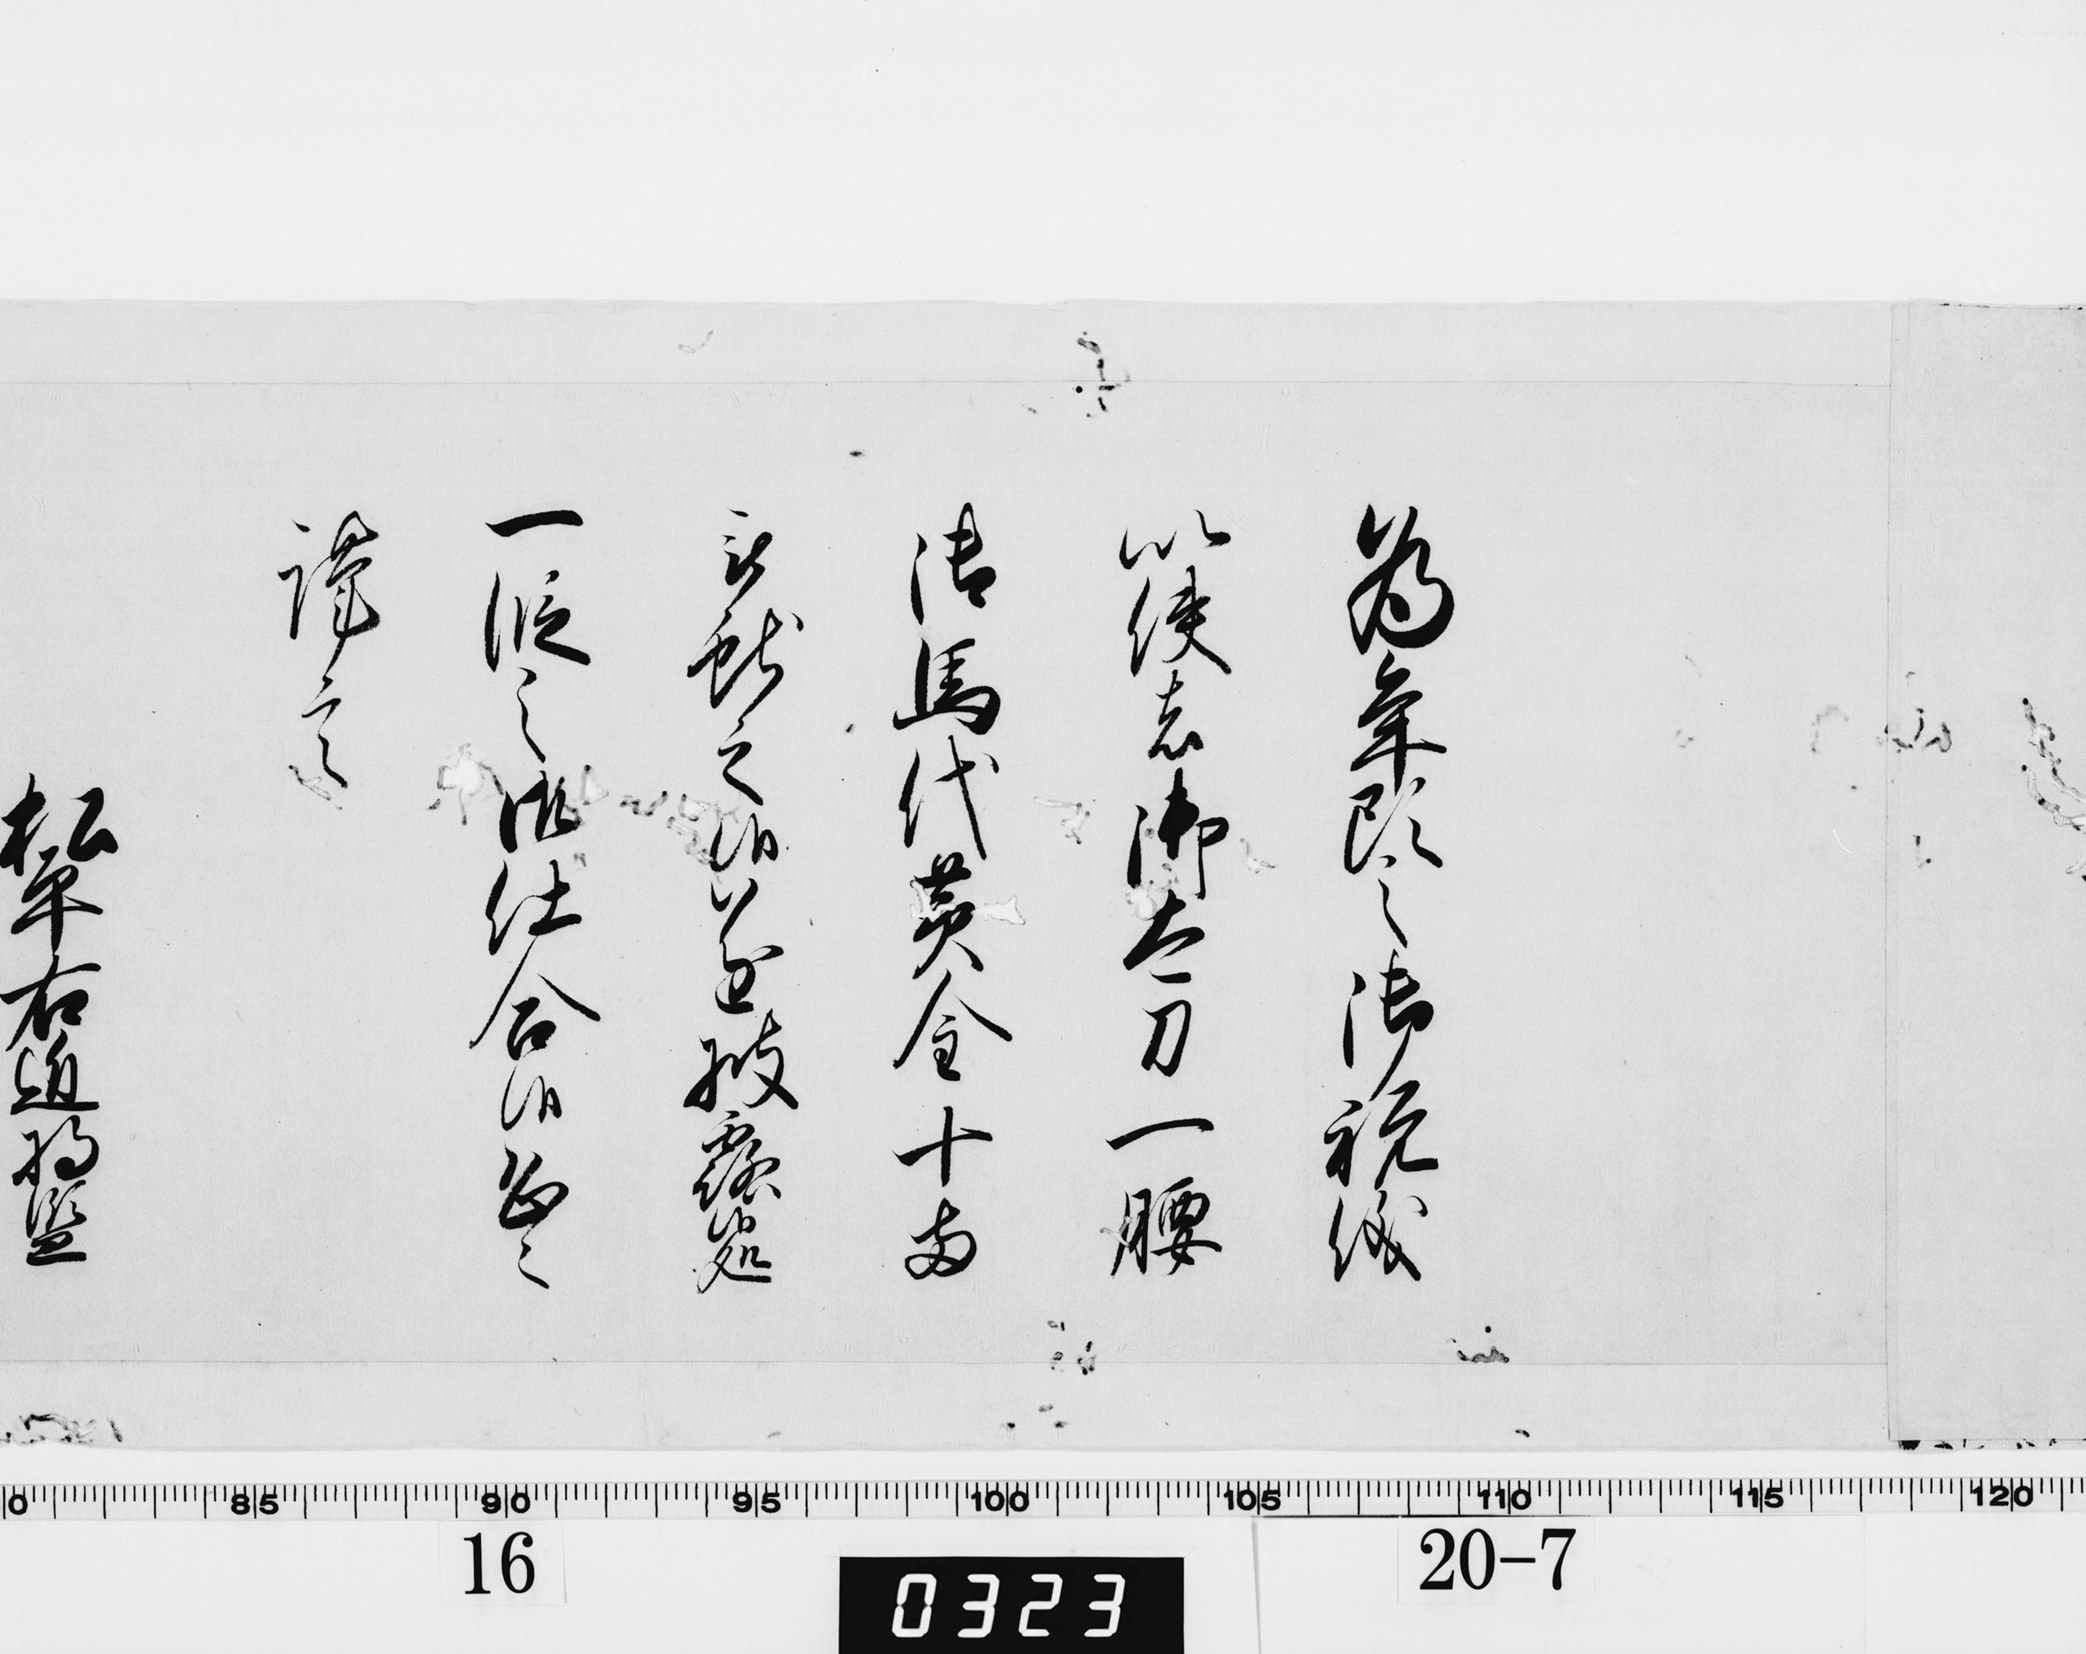 為年頭之御祝儀
以使者御太刀一腰
御馬代黄金十両
献之候
披露処
一段之御仕合候
謹言
松平右近将監
0 85 90 95 100 105 110 115 120
16
0323
20-7